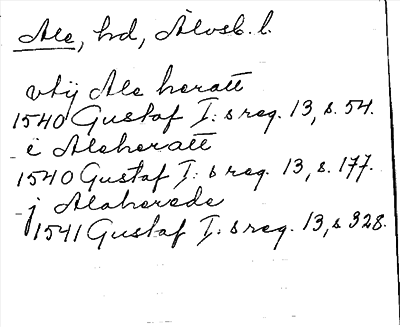 Ale, hd, Älvsb. l.
vtij Ale heratt
1540 Gustaf I:s reg. 13, s. 54.
i Aleheratt
1540 Gustaf I:s reg. 13, s. 177.
j Alaherede
1541 Gustaf I:s reg. 13, s 328.